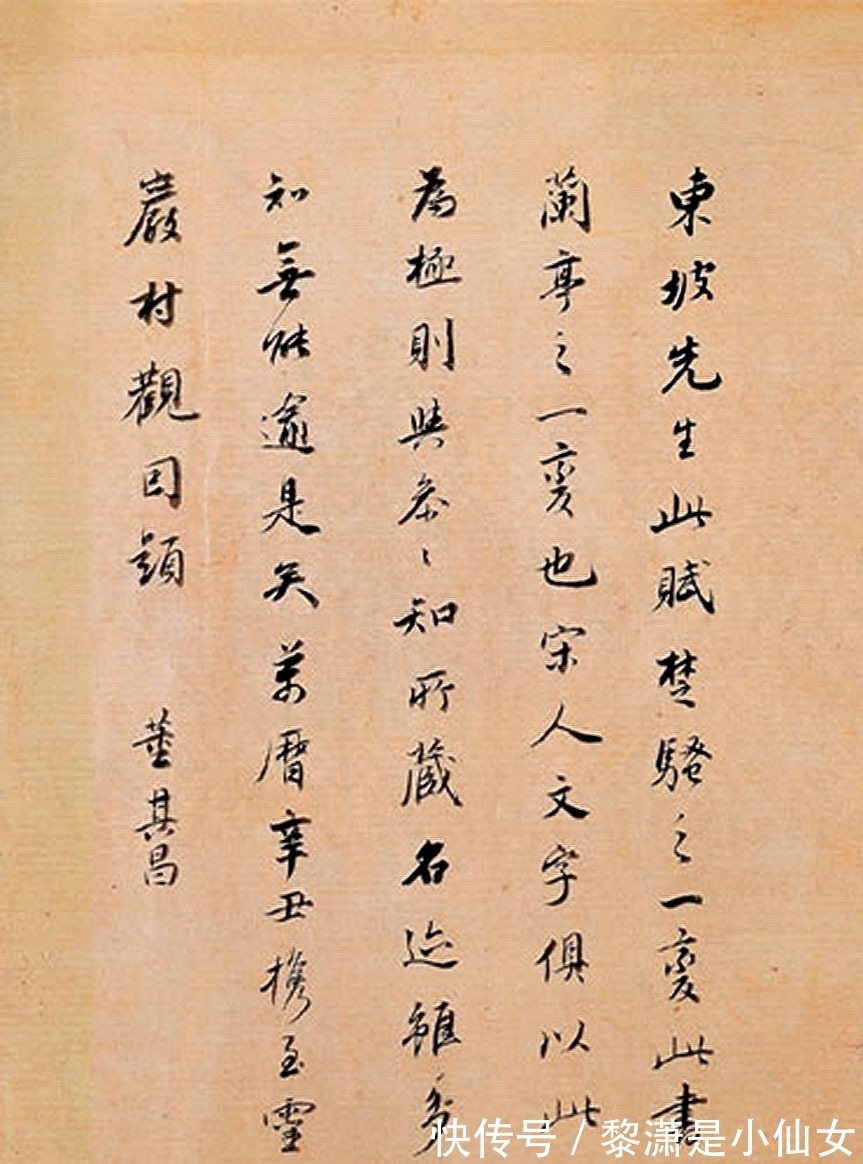 東坡先生此賦楚騷之一變此書
蘭亭之一變也宋人文字俱以此
為極則與參參知所藏名迹雖多
知無能逾是矣萬曆辛丑攜至靈
巖村觀因題
董其昌
快传号 / 黎潇是小仙女